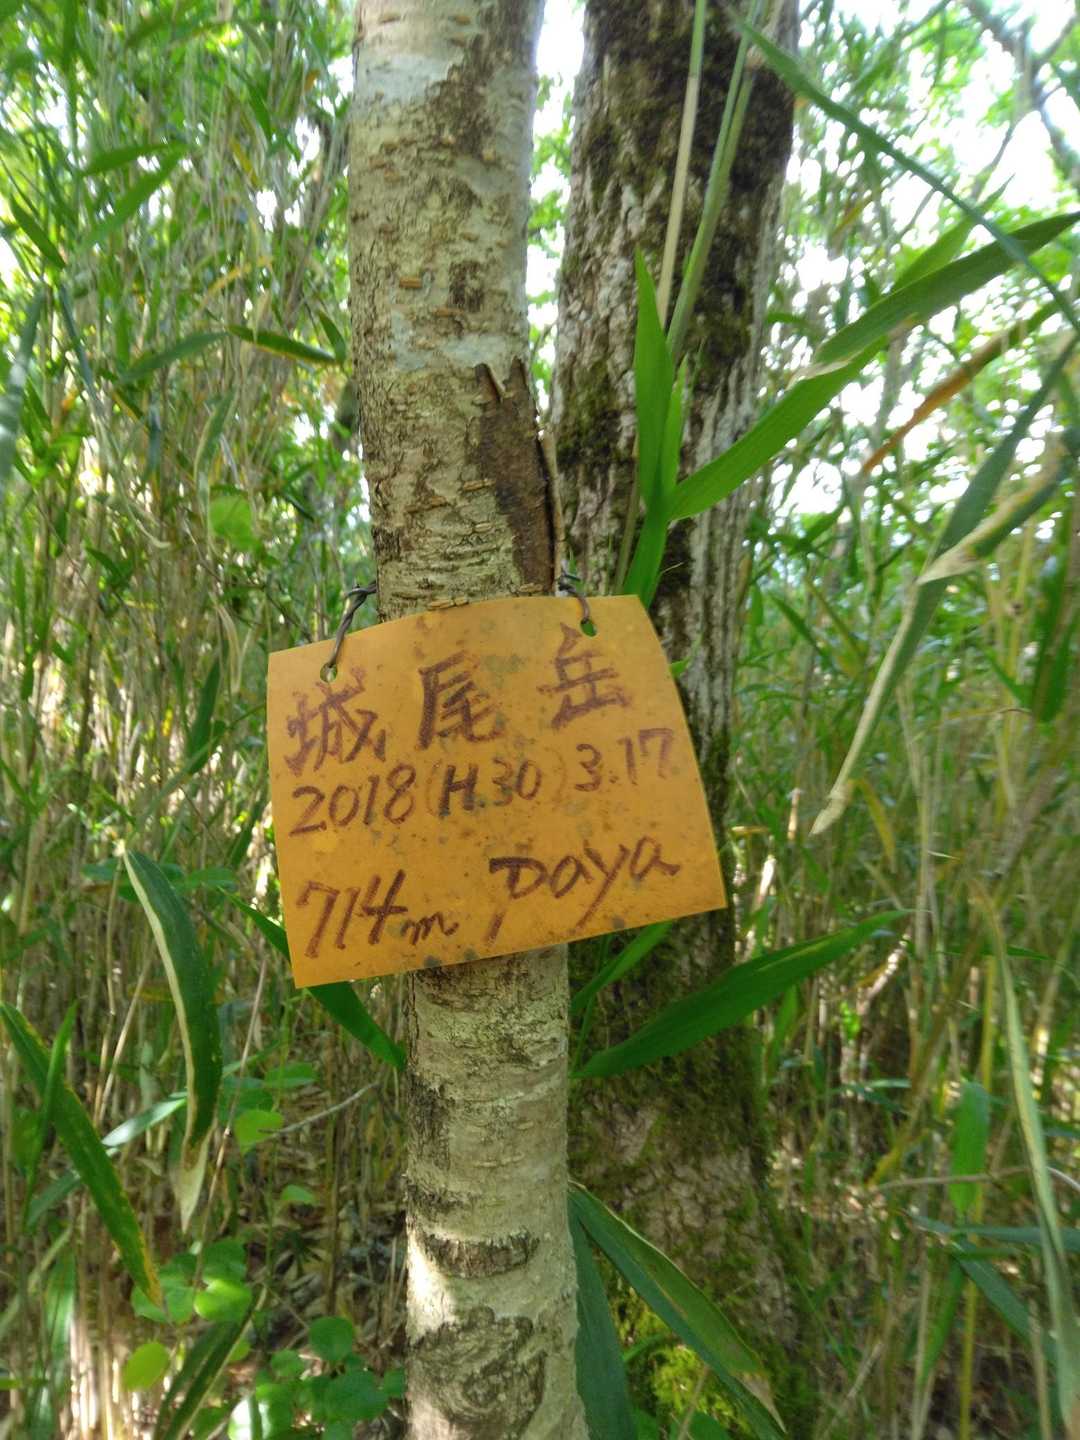 城尾岳
2018(H.30)3.17
714m Paya